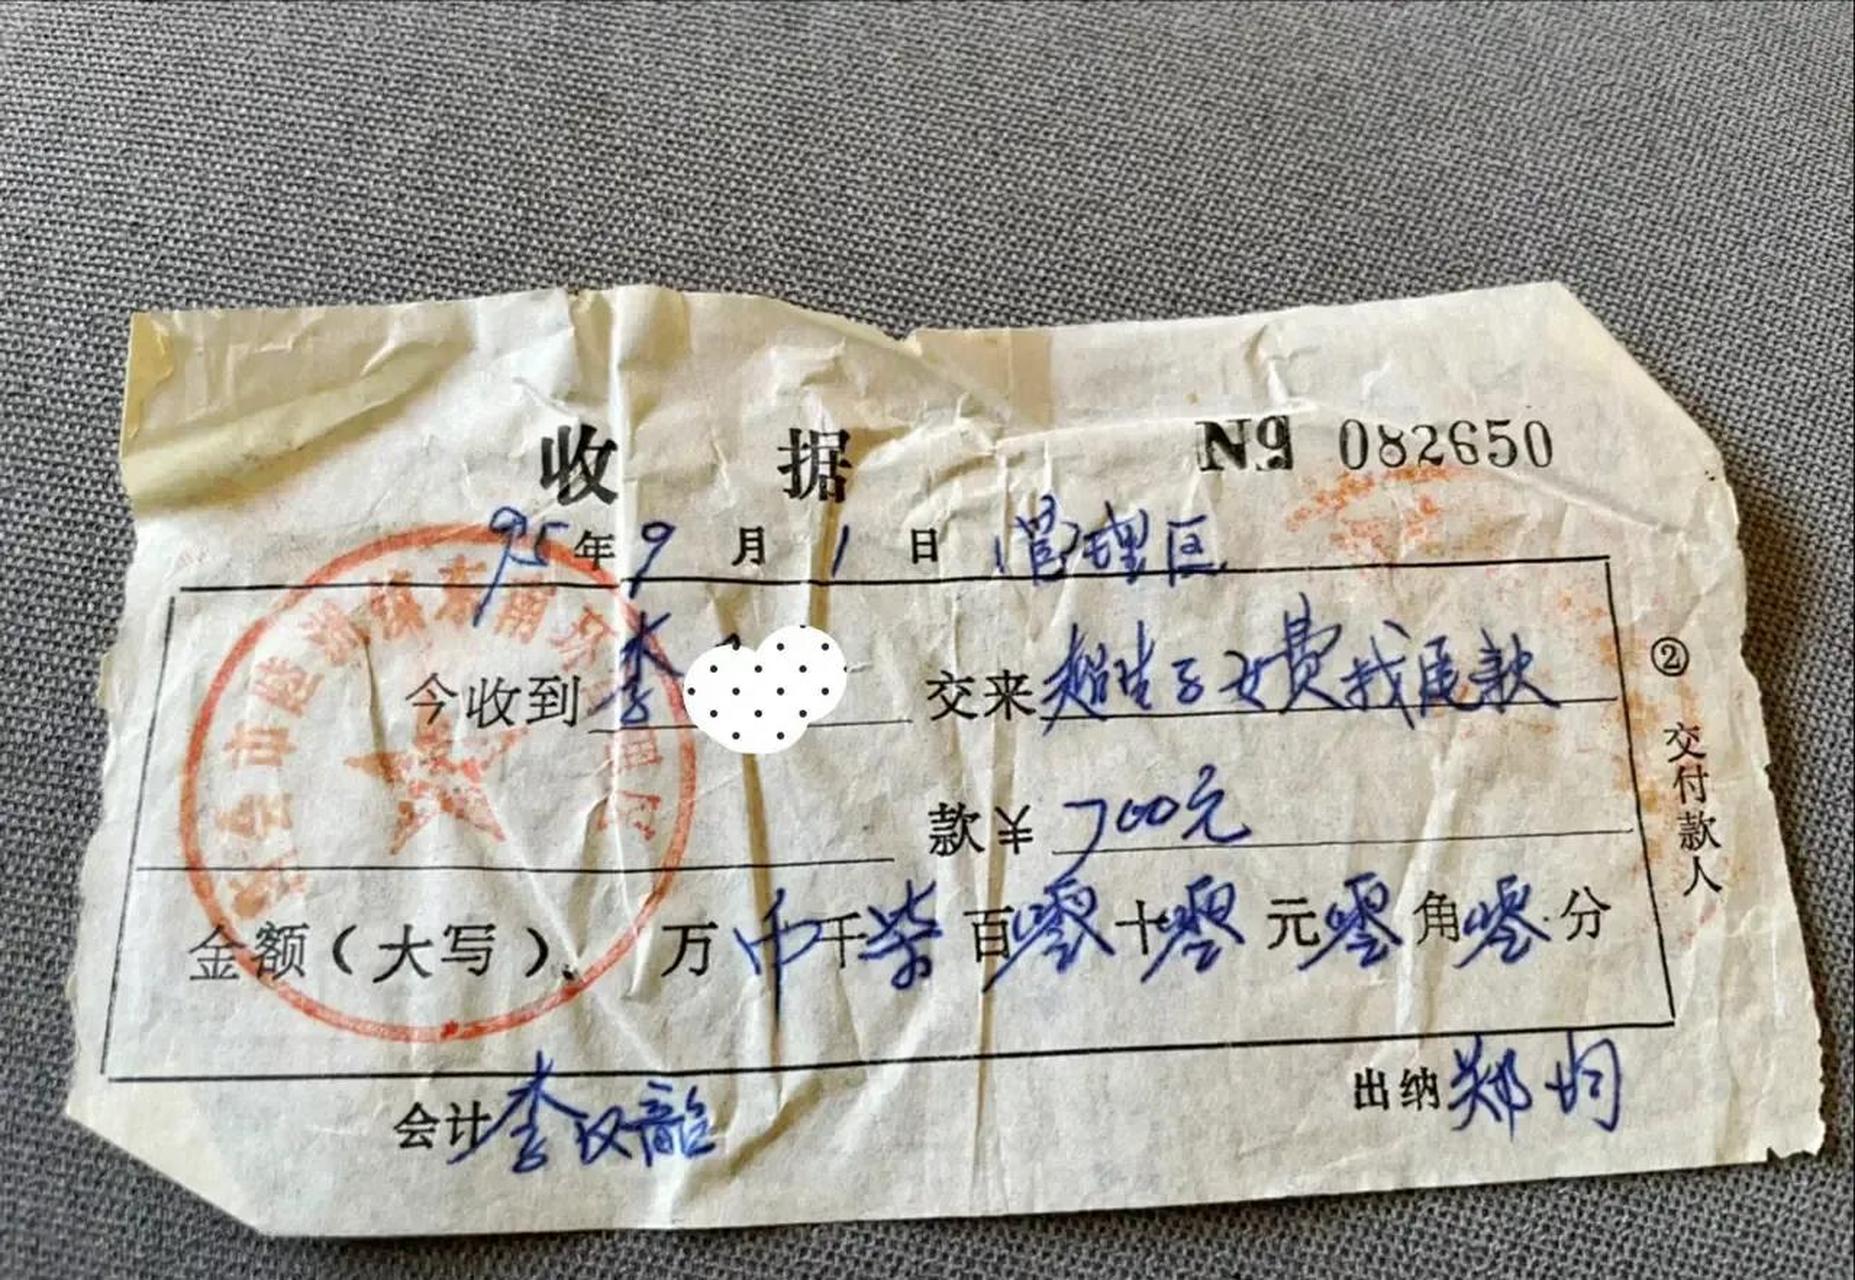 收 据
№ 082650
95年9月1日 管理区
今收到李 交来超生子女费找尾款
款¥700元
金额(大写) 万 千柒百零十零元零角零分
会计李汉韶
出纳郑均
②交付款人
市陆 镇东南 管理区